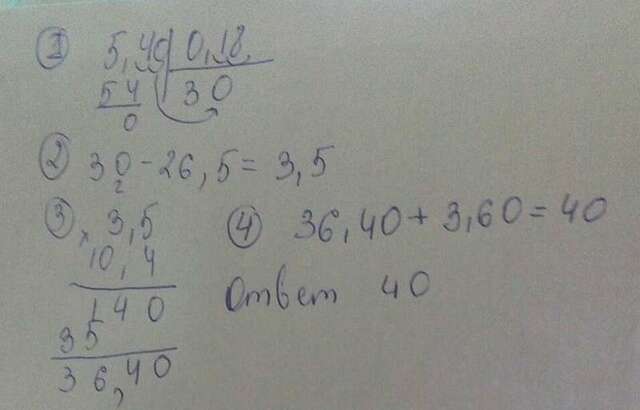 1 5,40 | 0,18
54 30
0
2 30 - 26,5 = 3,5
3 × 3,5
10,4
140
35
36,40
4 36,40 + 3,60 = 40
Ответ 40